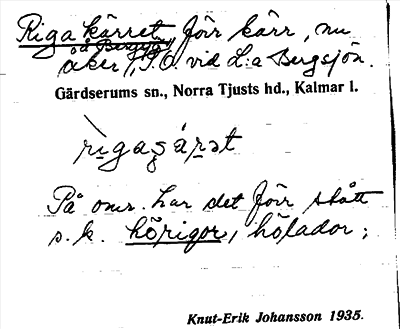 Rigakärret, förr kärr, nu
å Bergyd
åker, S.O. vid L:a Bergsjön.
Gärdserums sn., Norra Tjusts hd., Kalmar l.
rìgaʂárət
På omr. har det förr stått
s.k. hörigor, hölador;
Knut-Erik Johansson 1935.